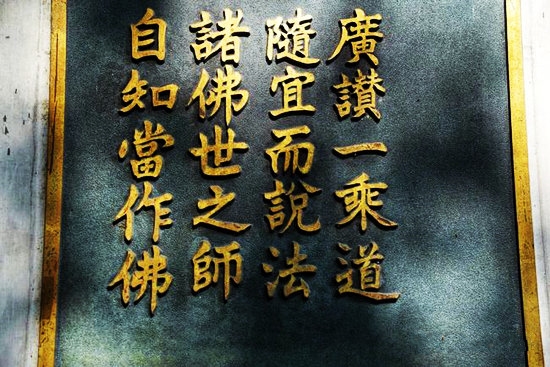 廣讃一乘道
隨宜而說法
諸佛世之師
自知當作佛